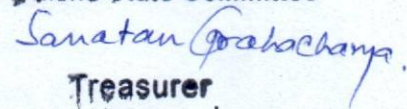 Sanatan Grahacharya.
Treasurer